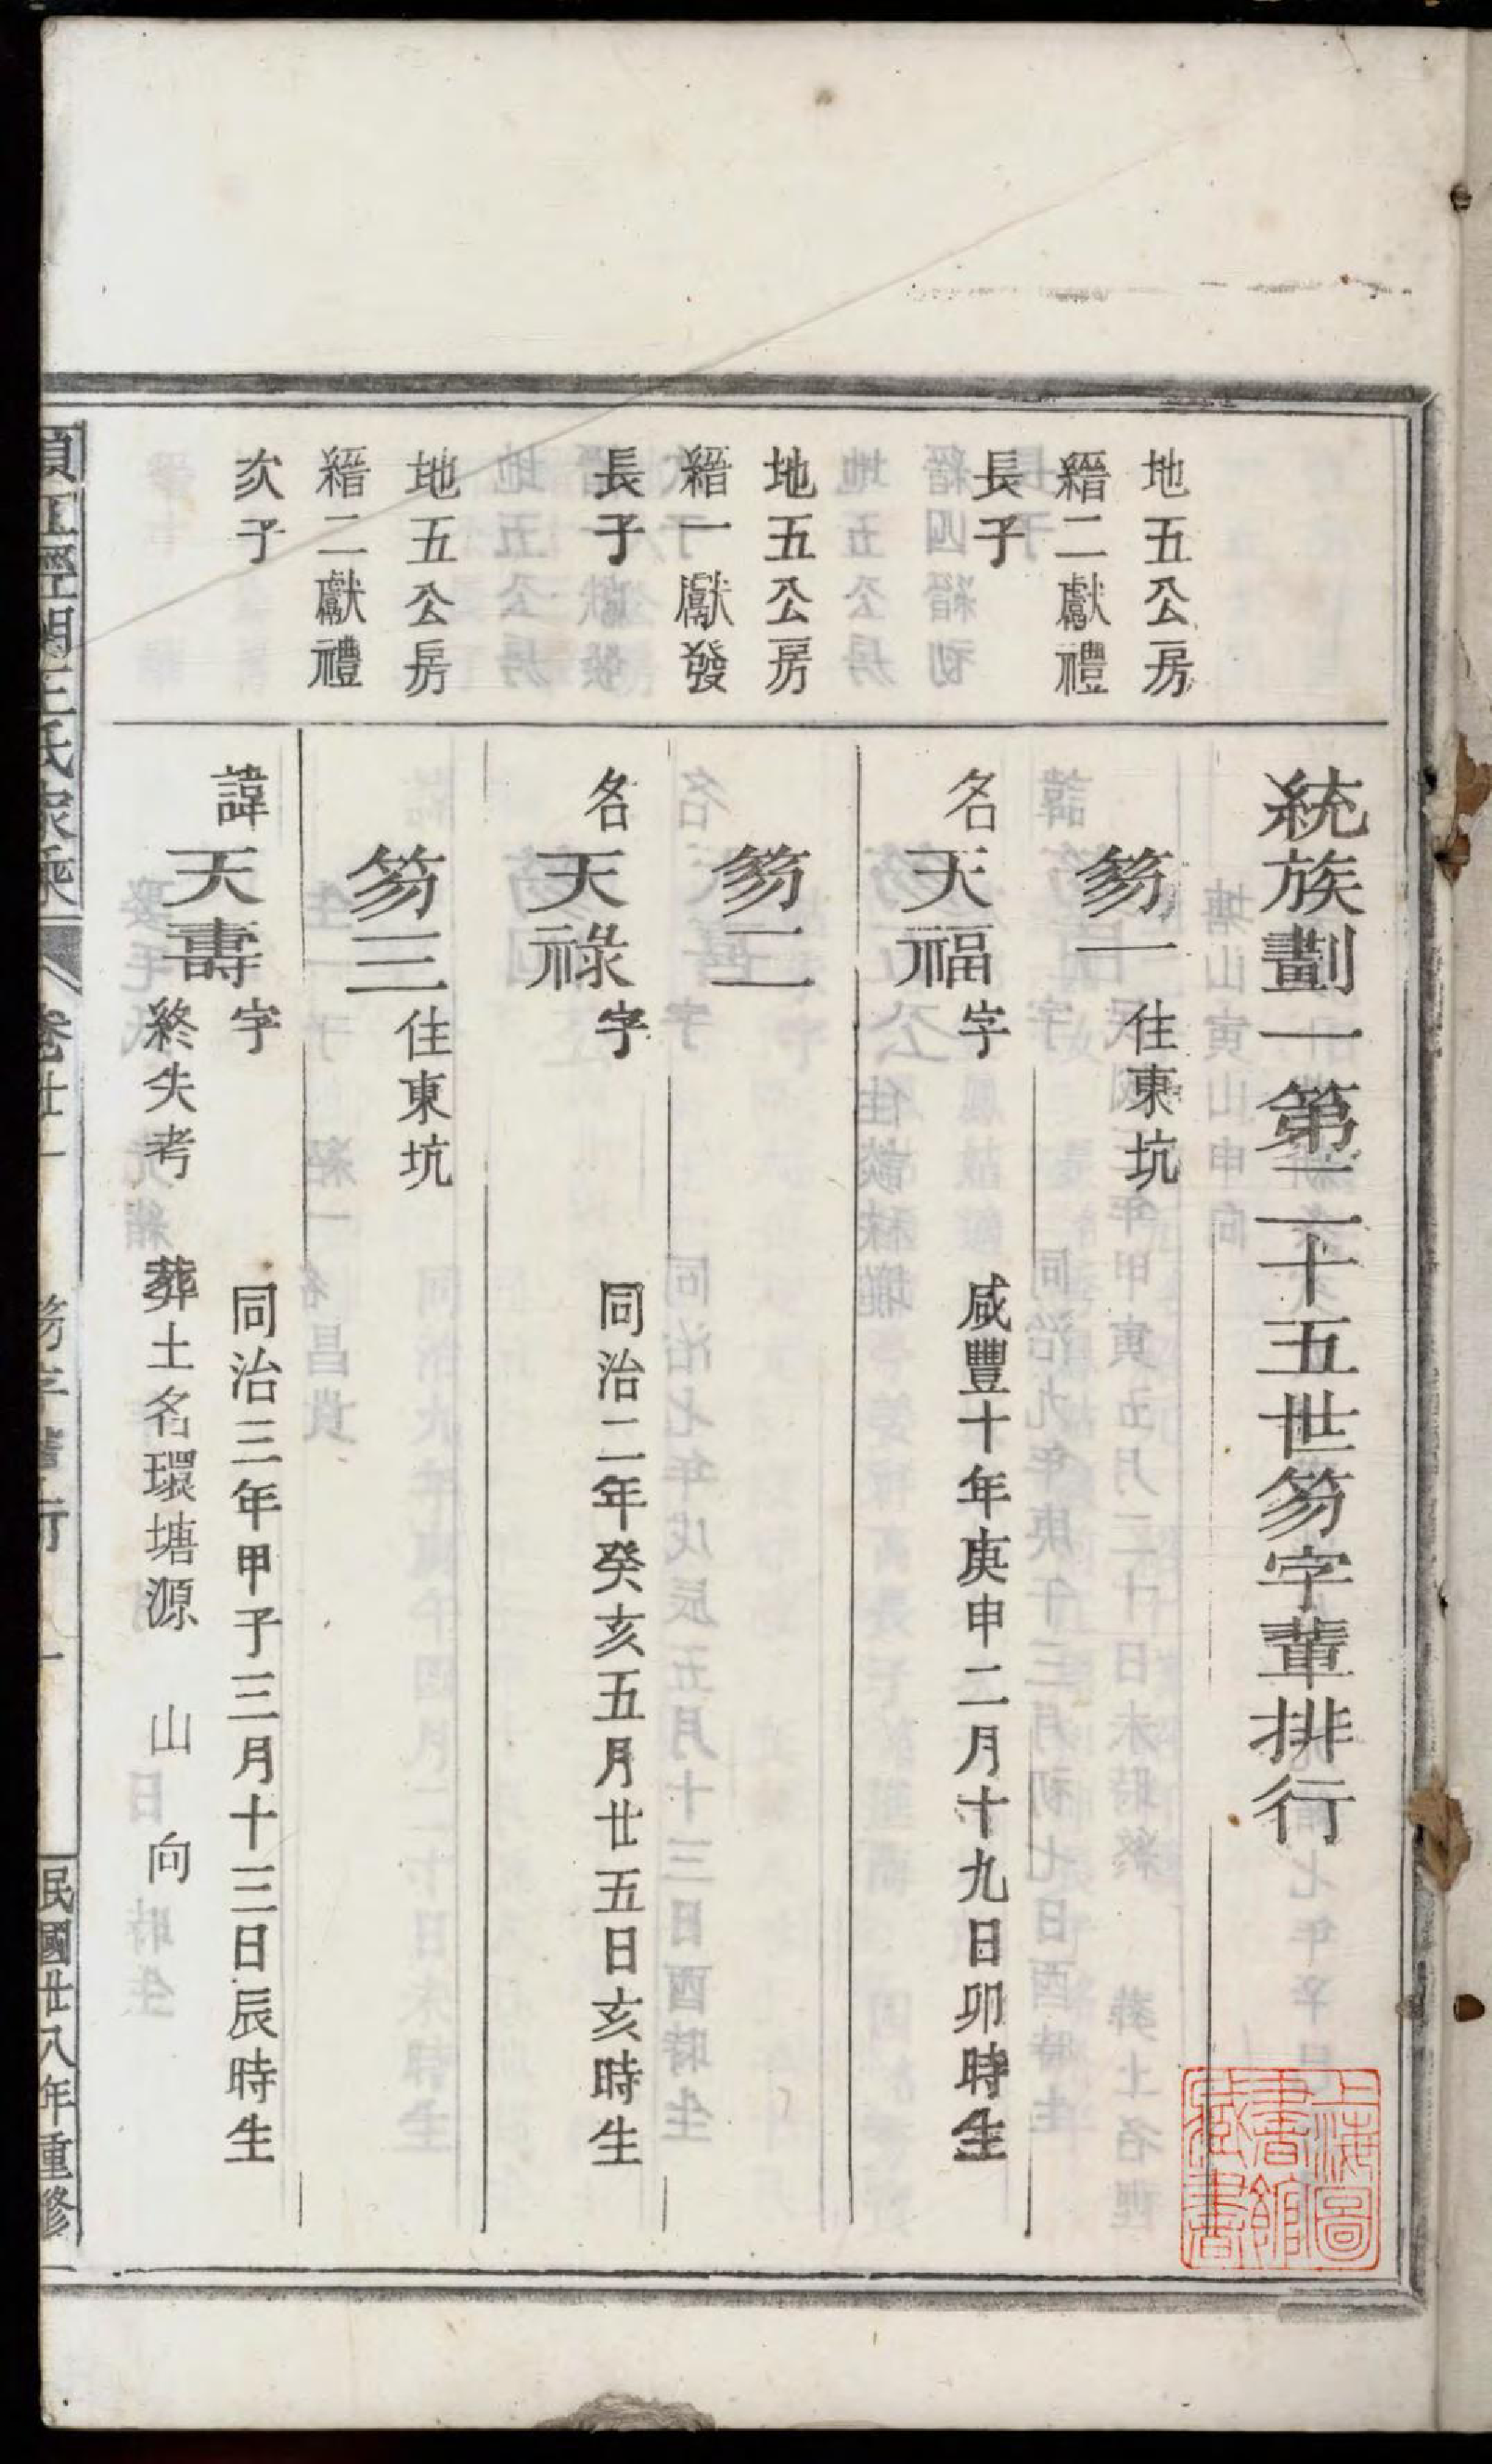 統族劃一第二十五世笏字輩排行
地五公房
縉二獻禮
長子
笏一住東坑
名天福字 咸豐十年庚申二月十九日卯時生
地五公房
縉一獻發
長子
笏二
名天祿字 同治二年癸亥五月廿五日亥時生
地五公房
縉二獻禮
次子
笏三住東坑
諱天壽字 同治三年甲子三月十三日辰時生
終失考 葬土名環塘源 山 向
王氏家乘 卷廿一 笏字輩行 一 民國廿八年重修
上海圖
書館
藏書